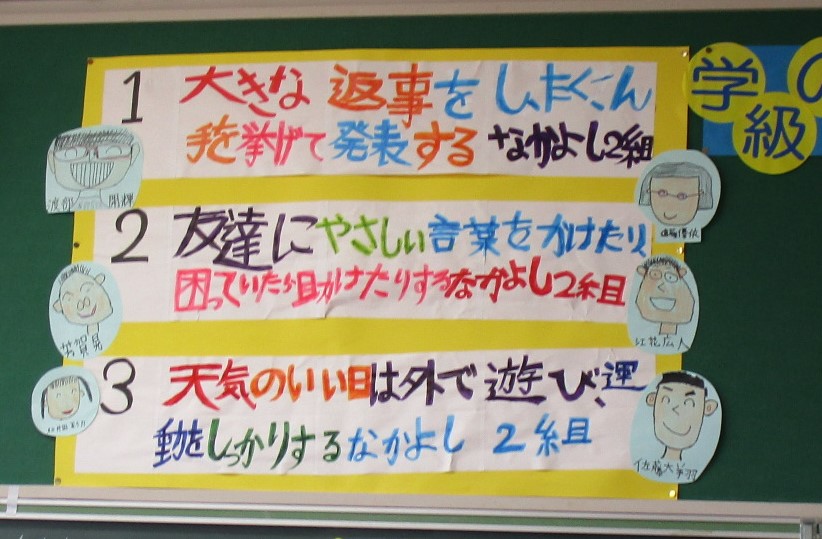 1 大きな返事をし、たくさん
手を挙げて発表するなかよし2組
2 友達にやさしい言葉をかけたり、
困っていたら助けたりするなかよし2組
3 天気のいい日は外で遊び、運
動をしっかりするなかよし2組
学級の
芳賀晃
江花広人